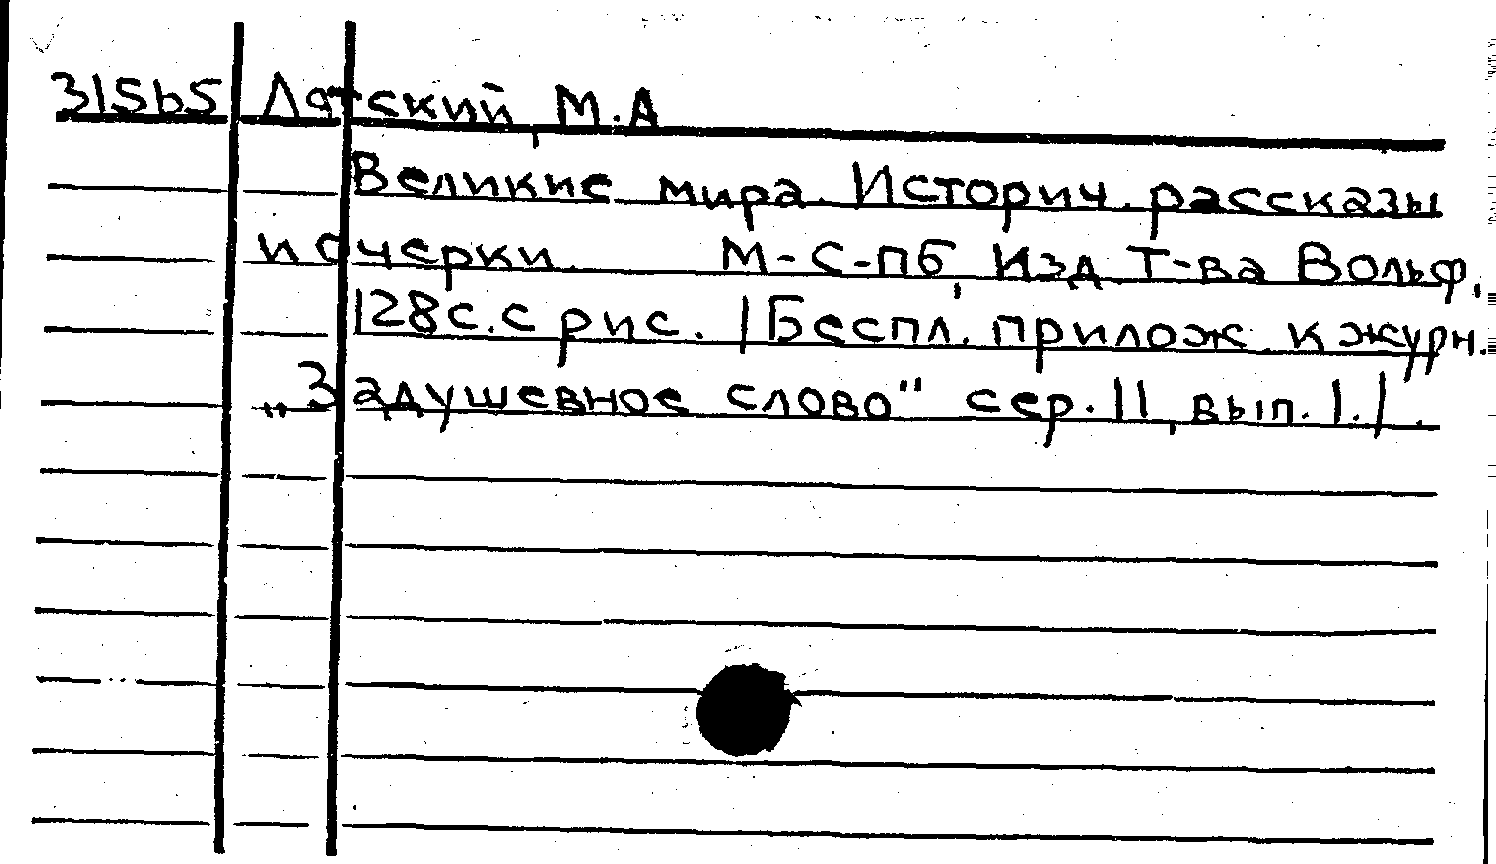 31565 Лятский, М.А
Великие мира. Историч. рассказы
и очерки. М-С-пб, Изд. Т-ва Вольф,
128с. с рис. /Беспл. прилож. к журн.
„Задушевное слово" сер. II, вып. I./.